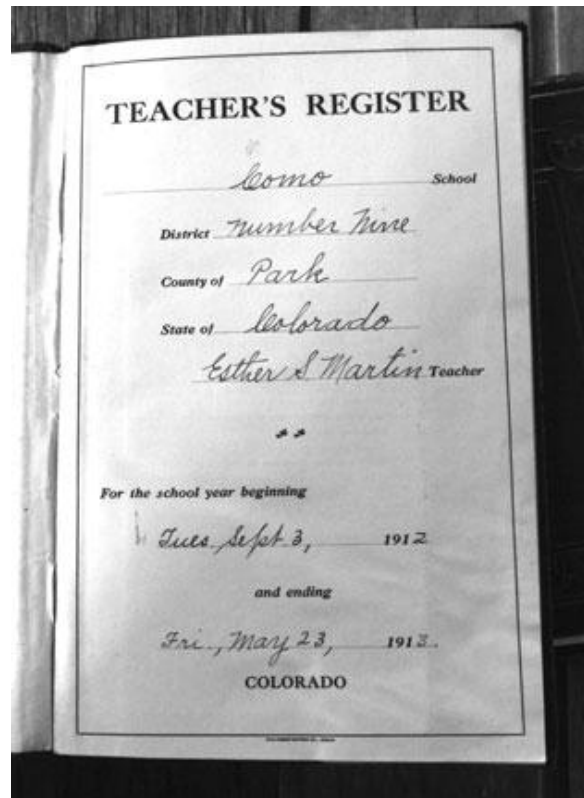 TEACHER'S REGISTER
Como School
District Number Nine
County of Park
State of Colorado
Esther S Martin Teacher
For the school year beginning
Tues, Sept 3, 1912
and ending
Fri., May 23, 1913.
COLORADO